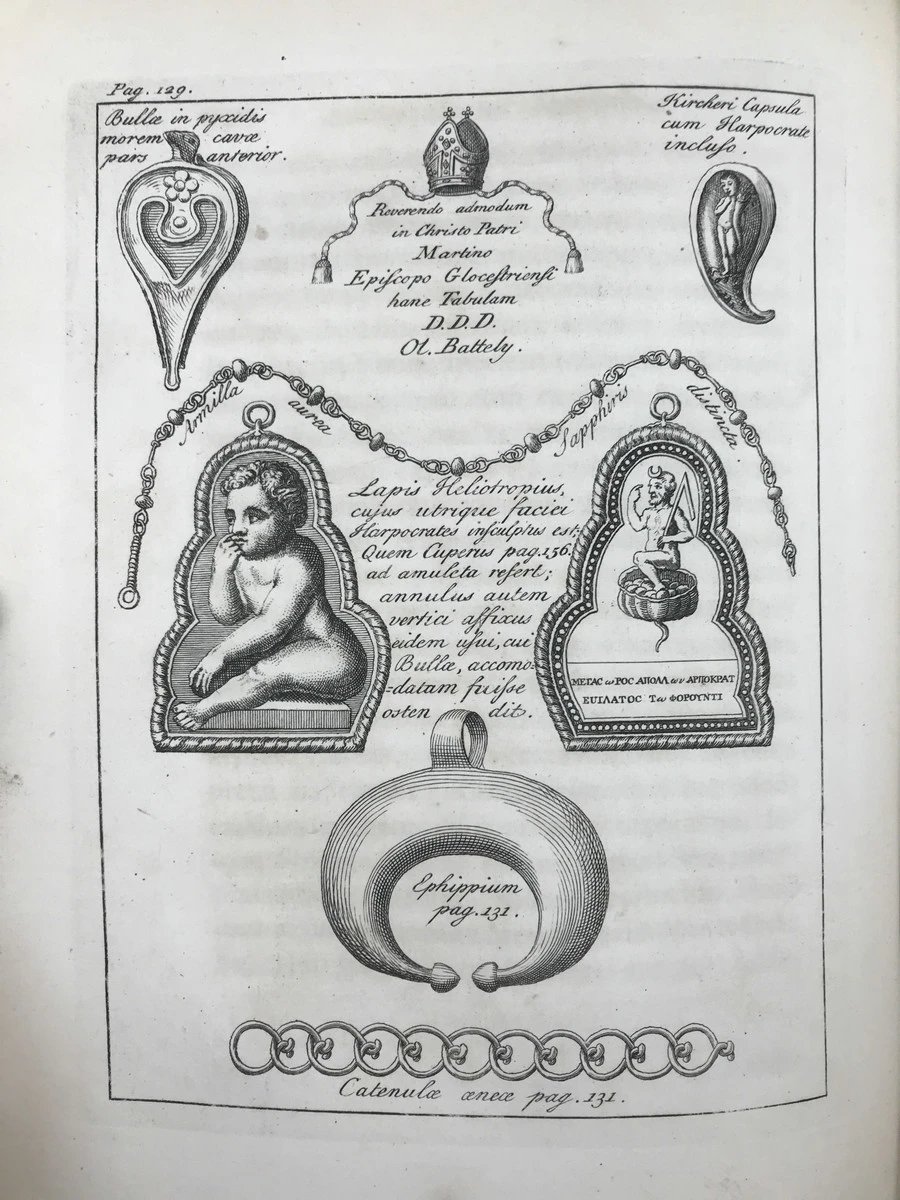 Pag. 129.
Bullæ in pyxidis
morem cavæ
pars anterior.
Kircheri Capsula
cum Harpocrate
incluſo.
Reverendo admodum
in Christo Patri
Martino
Epiſcopo Gloceſtrienſi
hanc Tabulam
D.D.D.
Ol. Battely.
Armilla aurea Sapphiris distincta
Lapis Heliotropius,
cujus utrique faciei
Harpocrates inſculptus est;
Quem Cuperus pag. 156.
ad amuleta refert;
annulus autem
vertici affixus
eidem uſui, cui
Bullæ, accomo-
=datam fuiſse
osten dit.
ΜΕΓΑϹ ωΡΟϹ ΑΠΟΛΛωυ ΑΡΠΟΚΡΑΤ
ΕΥΙΛΑΤΟϹ Τω ΦΟΡΟΥΝΤΙ
Ephippium
pag. 131.
Catenulæ æneæ pag. 131.